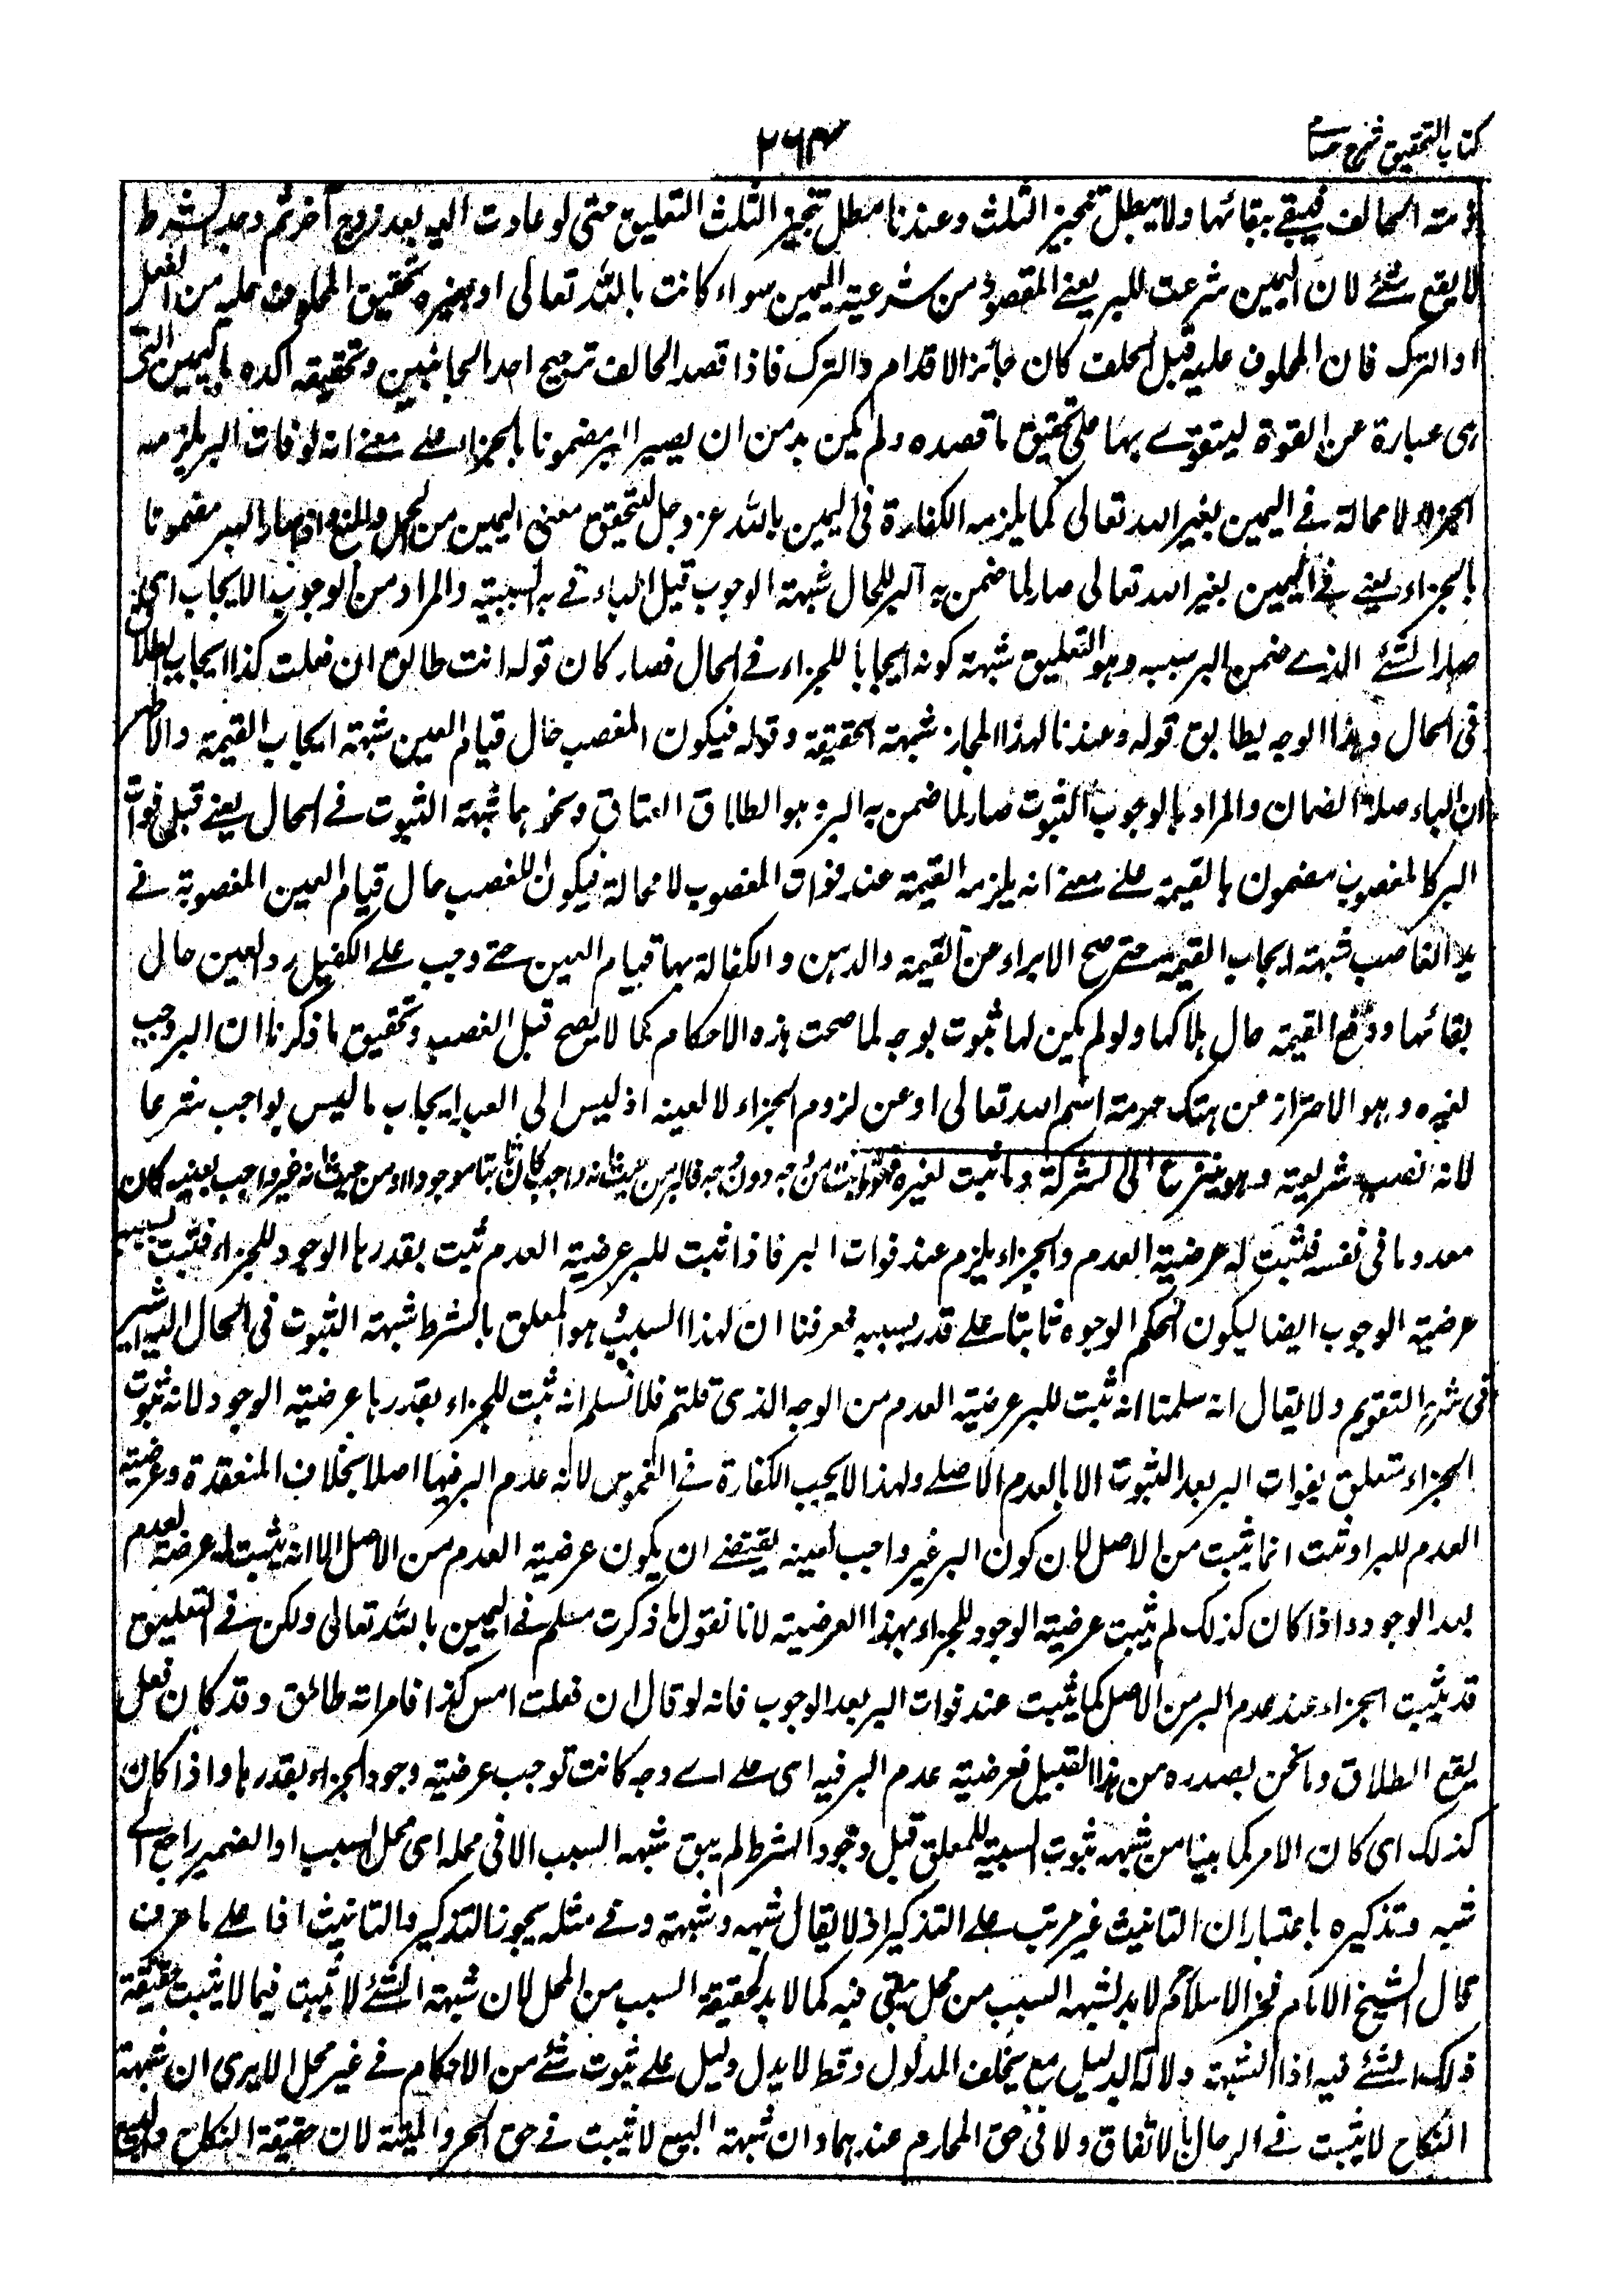 كتاب التحقيق شرح حسامي
٢٦٣
ذمته الحالف فيبقے ببقائها ولا يبطل تنجيز الثلث وعندنا مبطل تنجيز الثلث التعليق حتى لو عادت اليه بعد زوج آخر ثم وجد الشرط
لا يقع شئے لان اليمين شرعت للبر يعنے المقصود من شرعية اليمين سواء كانت بالله تعالى او بغيره تحقيق المحلوف عليه من الفعل
او الترك فان المحلوف عليه قبل الحلف كان جائز الاقدام والترك فاذا قصد الحالف ترجيح احد الجانبين وتحقيقه اكده باليمين التى
هى عبارة عن القوة ليتقوے بها على تحقيق ما قصده ولم يكن بد من ان يصير البر مضمونا بالجزاء علے معنے انه لو فات البر يلزمه
الجزاء لا محالة فے اليمين بغير الله تعالى كما يلزمه الكفارة فى اليمين بالله عز وجل لتحقيق معنى اليمين من الحمل والمنع واذا صار البر مضمونا
بالجزاء يعنے فے اليمين بغير الله تعالى صار لما ضمن به البر للحال شبهة الوجوب قيل الباء فے به لسببية والمراد من الوجوب الايجاب اى
صار الشئے الذے ضمن البر بسببه وهو التعليق شبهة كونه ايجابا للجزاء فے الحال فصار كان قوله انت طالق ان فعلت كذا ايجاب الطلاق
فى الحال وهذا الوجه يطابق قوله وعندنا لهذا المجاز شبهة الحقيقة وقوله فيكون المغصب حال قيام العين شبهة ايجاب القيمة والاظهر
ان الباء صلة الضمان والمراد بالوجوب الثبوت صار لما ضمن به البر وهو الطلاق العتاق ونحوهما شبهة الثبوت فے الحال يعنے قبل فوات
البر كالمغصوب مضمون بالقيمة علے معنے انه يلزمه القيمة عند فوات المغصوب لا محالة فيكون للغصب حال قيام العين المغصوبة فے
يد الغاصب شبهة ايجاب القيمة حتے صح الابراء عن القيمة والرهن والكفالة بها قيام العين حتے وجب علے الكفيل رد العين حال
بقائها ودفع القيمة حال هلاكها ولو لم يكن لها ثبوت بوجه لما صحت هذه الاحكام كما لا يصح قبل الغصب وتحقيق ما ذكرنا ان البر وجب
لغيره وهو الاحتراز عن هتك حرمة اسم الله تعالى او عن لزوم الجزاء لا لعينه اذ ليس الى العبد ايجاب ما ليس بواجب شرعا
لانه نصب شريعة وهو ينزع الى الشركة وما ثبت لغيره فهو ثابت من وجه دون وجه فالبر من حيث انه واجب كان ثابتا موجودا ومن حيث انه غير واجب بعينه كان
معدوما فى نفسه فثبت له عرضية العدم والجزاء يلزم عند فوات البر فاذا ثبت للبر عرضية العدم ثبت بقدرها الوجود للجزاء فثبت لسببه
عرضية الوجوب ايضا ليكون الحكم الوجوه ثابتا علے قدر سببه فعرفنا ان لهذا السبب وهو المعلق بالشرط شبهة الثبوت فى الحال اليه اشير
فى شرح التقويم ولا يقال انه سلمنا انه ثبت للبر عرضية العدم من الوجه الذى قلتم فلا نسلم انه ثبت للجزاء بقدرها عرضية الوجود لانه ثبوت
الجزاء متعلق بفوات البر بعد الثبوت الا بالعدم الاصلے ولهذا لا يجب الكفارة فے الغموس لانه عدم البر فيها اصلا بخلاف المنعقدة وعرضية
العدم للبر اوثت انما يثبت من الاصل لان كون البر غير واجب لعينه يقتضے ان يكون عرضية العدم من الاصل الا انه يثبت له عرضة العدم
بعد الوجود واذا كان كذلك لم يثبت عرضية الوجود للجزاء بهذا العرضية لانا نقول ما ذكرت مسلم فے اليمين بالله تعالى ولكن فے التعليق
قد يثبت الجزاء عند عدم البر من الاصل كما يثبت عند فوات البر بعد الوجوب فانه لو قال ان فعلت امس كذا فامراته طالق وقد كان فعل
يقع الطلاق وما نحن بصدره من هذا القبيل فعرضية عدم البر فيه اى علے اے وجه كانت توجب عرضية وجود الجزاء بقدرها واذا كان
كذلك اى كان الامر كما بينا من شبهه ثبوت السببية للمعلق قبل وجود الشرط لم يبق شبهه السبب الا فى محله اى محل السبب او الضمير راجع الے
شبه وتذكيره باعتبار ان التانيث غير مرتب علے التذكير اذ لا يقال شبهه وشبهة وفے مثله يجوز التذكير والتانيث اذا علے ما عرف
قال الشيخ الامام فخر الاسلام لا بد لشبهه السبب من محل يبقى فيه كما لا بد لحقيقة السبب من المحل لان شبهة الشئے لا يثبت فيما لا يثبت حقيقة
ذلك الشئے فيه اذا الشبهة دلالة الدليل مع يخلف المدلول وقط لا يدل دليل علے ثبوت شئے من الاحكام فے غير محل الا يرى ان شبهة
النكاح لا يثبت فے الرجال بالاتفاق ولا فى حق المحارم عندهما وان شبهة البيع لا يثبت فے حق الحر والميتة لان حقيقة النكاح والبيع